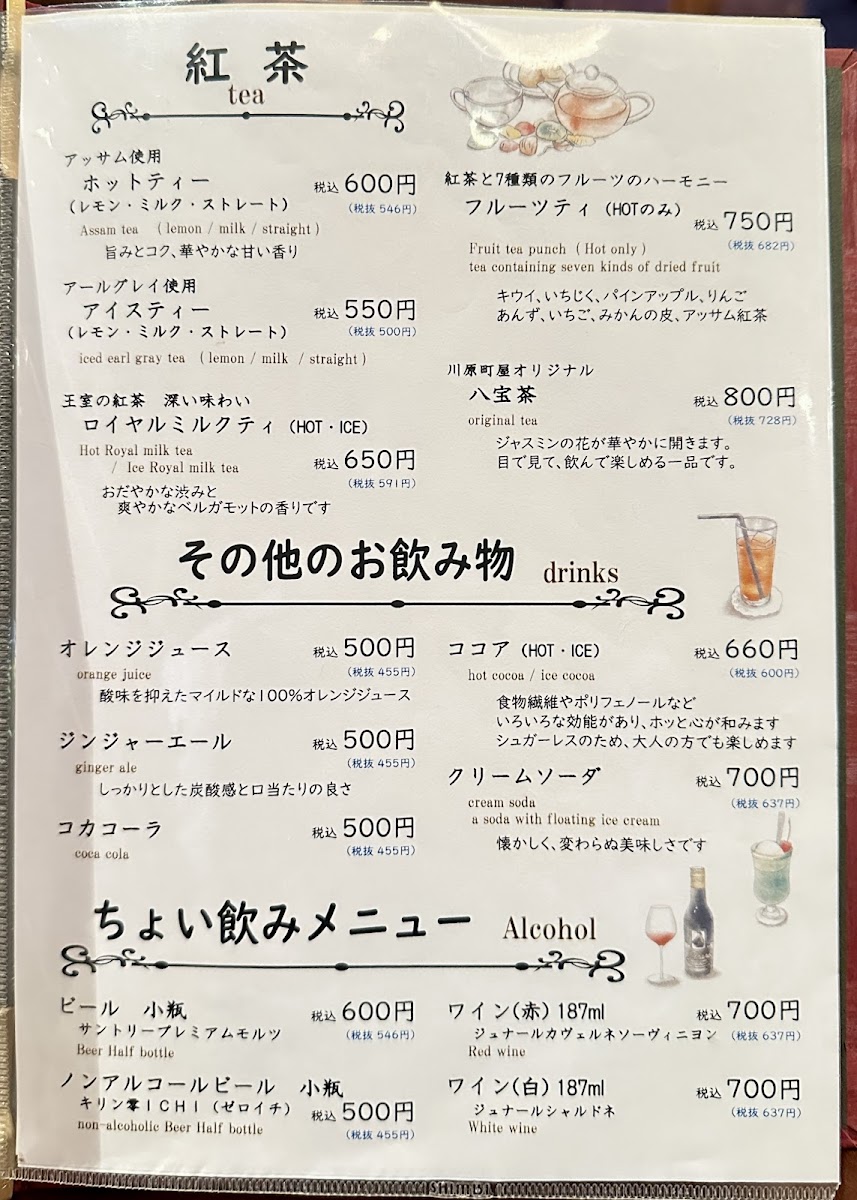 紅 茶
tea
アッサム使用
ホットティー 税込600円
(レモン・ミルク・ストレート) (税抜 546円)
Assam tea ( lemon / milk / straight )
旨みとコク、華やかな甘い香り
アールグレイ使用
アイスティー 税込550円
(レモン・ミルク・ストレート) (税抜 500円)
iced earl gray tea ( lemon / milk / straight )
王室の紅茶 深い味わい
ロイヤルミルクティ (HOT・ICE)
Hot Royal milk tea
/ Ice Royal milk tea 税込650円
(税抜 591円)
おだやかな渋みと
爽やかなベルガモットの香りです
紅茶と7種類のフルーツのハーモニー
フルーツティ (HOTのみ) 税込750円
(税抜 682円)
Fruit tea punch ( Hot only )
tea containing seven kinds of dried fruit
キウイ、いちじく、パインアップル、りんご
あんず、いちご、みかんの皮、アッサム紅茶
川原町屋オリジナル
八宝茶 税込800円
original tea (税抜 728円)
ジャスミンの花が華やかに開きます。
目で見て、飲んで楽しめる一品です。
その他のお飲み物 drinks
オレンジジュース 税込500円
orange juice (税抜 455円)
酸味を抑えたマイルドな100%オレンジジュース
ジンジャーエール 税込500円
ginger ale (税抜 455円)
しっかりとした炭酸感と口当たりの良さ
コカコーラ 税込500円
coca cola (税抜 455円)
ココア (HOT・ICE) 税込660円
hot cocoa / ice cocoa (税抜 600円)
食物繊維やポリフェノールなど
いろいろな効能があり、ホッと心が和みます
シュガーレスのため、大人の方でも楽しめます
クリームソーダ 税込700円
cream soda (税抜 637円)
a soda with floating ice cream
懐かしく、変わらぬ美味しさです
ちょい飲みメニュー Alcohol
ビール 小瓶 税込600円
サントリープレミアムモルツ (税抜 546円)
Beer Half bottle
ノンアルコールビール 小瓶
キリン零ICHI (ゼロイチ) 税込500円
non-alcoholic Beer Half bottle (税抜 455円)
ワイン(赤) 187ml 税込700円
ジュナールカヴェルネソーヴィニヨン (税抜 637円)
Red wine
ワイン(白) 187ml 税込700円
ジュナールシャルドネ (税抜 637円)
White wine